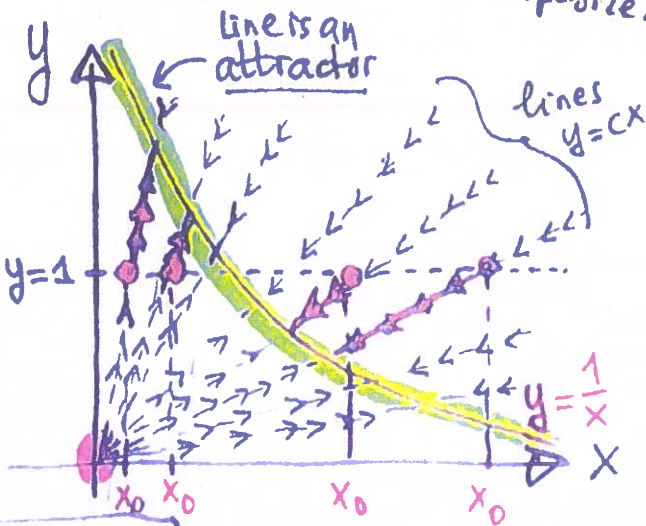 y
line is an
attractor
lines
y=cx
y=1
y=1/x
x
x₀ x₀ x₀ x₀